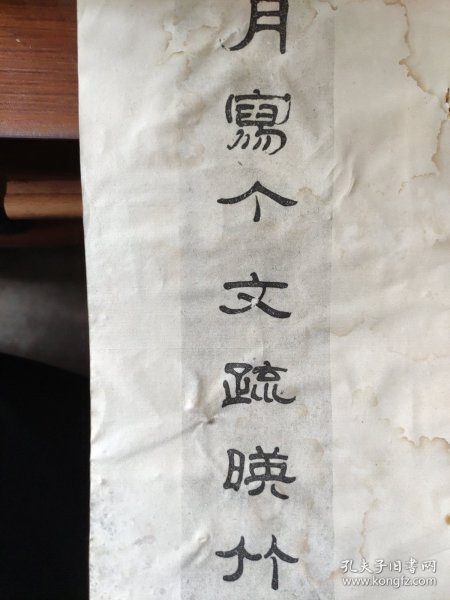 月寫个文疏暎竹
孔夫子旧书网
www.kongfz.com